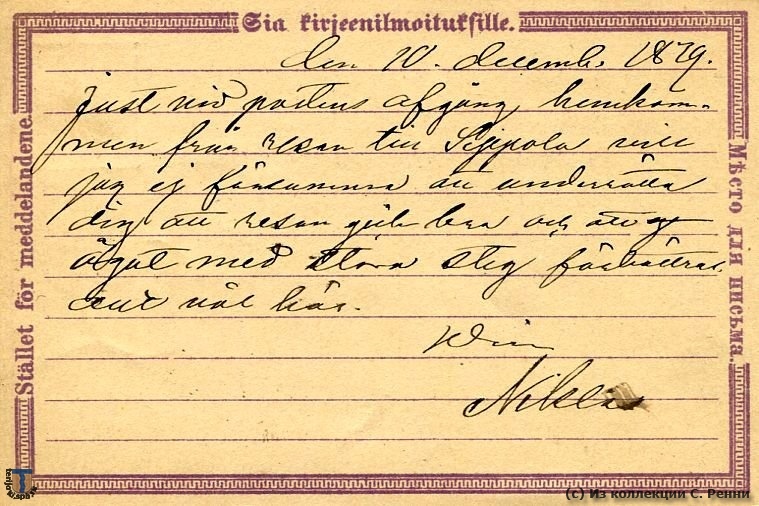 Sia kirjeenilmoituksille.
Stället för meddelandene.
Мѣсто для письма.
den 10. decemb. 1879.
Just vid postens afgång, hemkom-
men från resan till Sippola vill
jag ej försumma att underrätta
dig att resan gick bra och att
ögat med stora steg förbättras
allt väl här.
Din
Niklas
(с) Из коллекции С. Ренни
terijoki.spb.ru